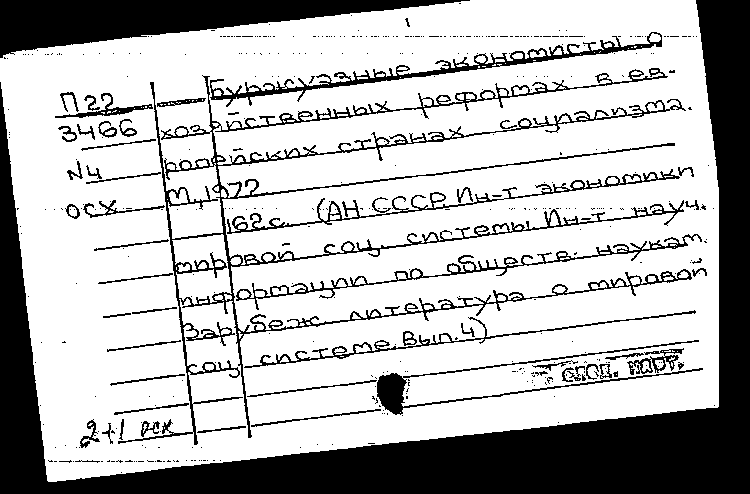 Буржуазные экономисты о
П22
3466 хозяйственных реформах в ев-
N4 ропейских странах социализма.
осх М., 1972.
162 с. (АН СССР. Ин-т экономики
мировой соц. системы. Ин-т науч.
информации по обществ. наукам.
Зарубеж. литература о мировой
соц. системе. Вып. 4)
2+1 осх